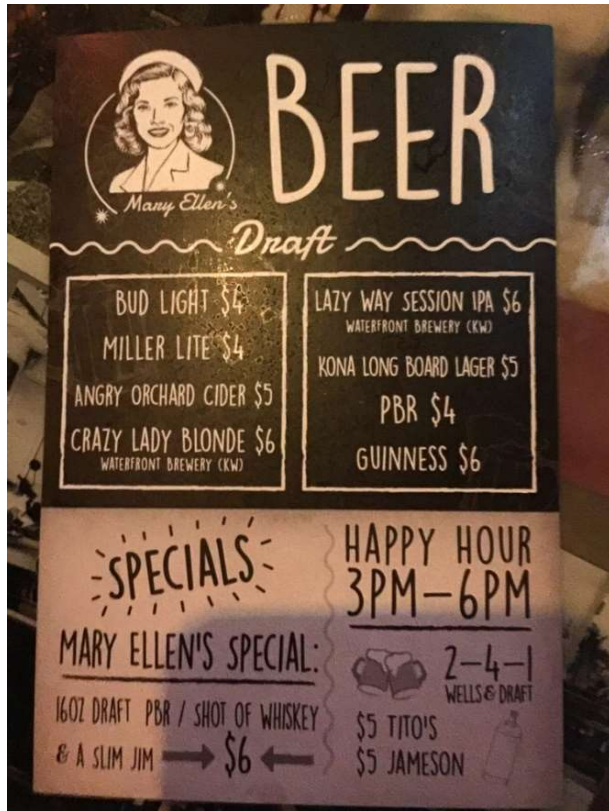 BEER
Mary Ellen's
Draft
BUD LIGHT $4
MILLER LITE $4
ANGRY ORCHARD CIDER $5
CRAZY LADY BLONDE $6
WATERFRONT BREWERY (KW)
LAZY WAY SESSION IPA $6
WATERFRONT BREWERY (KW)
KONA LONG BOARD LAGER $5
PBR $4
GUINNESS $6
SPECIALS
MARY ELLEN'S SPECIAL:
16OZ DRAFT PBR / SHOT OF WHISKEY
& A SLIM JIM $6
HAPPY HOUR
3PM-6PM
2-4-1
WELLS & DRAFT
$5 TITO'S
$5 JAMESON